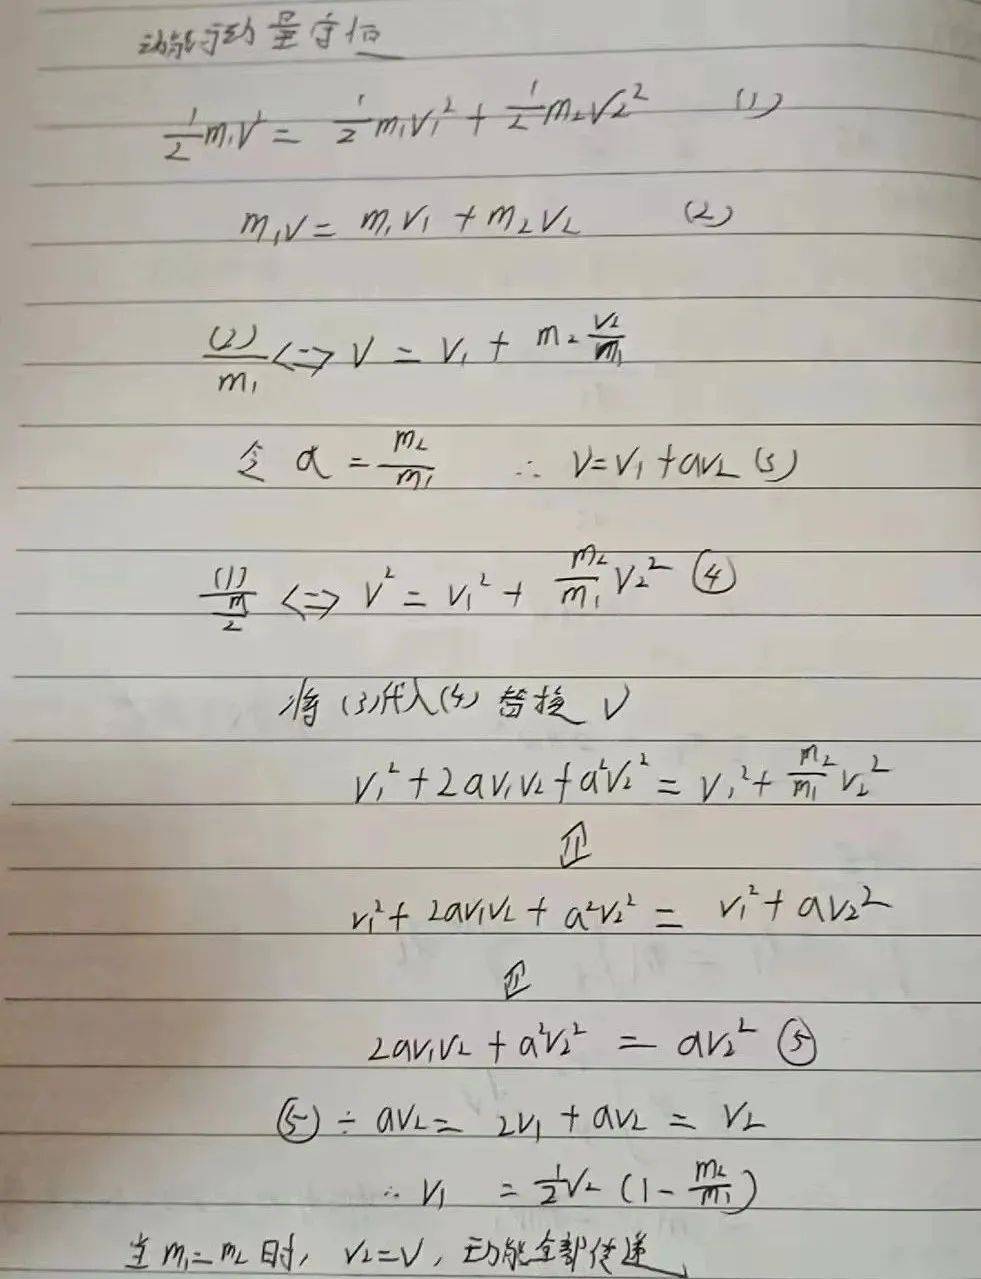 动能与动量守恒
½m₁v² = ½m₁v₁² + ½m₂v₂² (1)
m₁v = m₁v₁ + m₂v₂ (2)
(2)/m₁ <=> v = v₁ + m₂ v₂/m₁
令 a = m₂/m₁ ∴ v = v₁ + av₂ (3)
(1)/(m/2) <=> v² = v₁² + m₂/m₁ v₂² ④
将(3)代入(4)替换 v
v₁² + 2av₁v₂ + a²v₂² = v₁² + m₂/m₁ v₂²
⇕
v₁² + 2av₁v₂ + a²v₂² = v₁² + av₂²
⇕
2av₁v₂ + a²v₂² = av₂² ⑤
⑤ ÷ av₂ = 2v₁ + av₂ = v₂
∴ v₁ = ½v₂ (1 - m₂/m₁)
当 m₁=m₂ 时, v₂=v, 动能全部传递